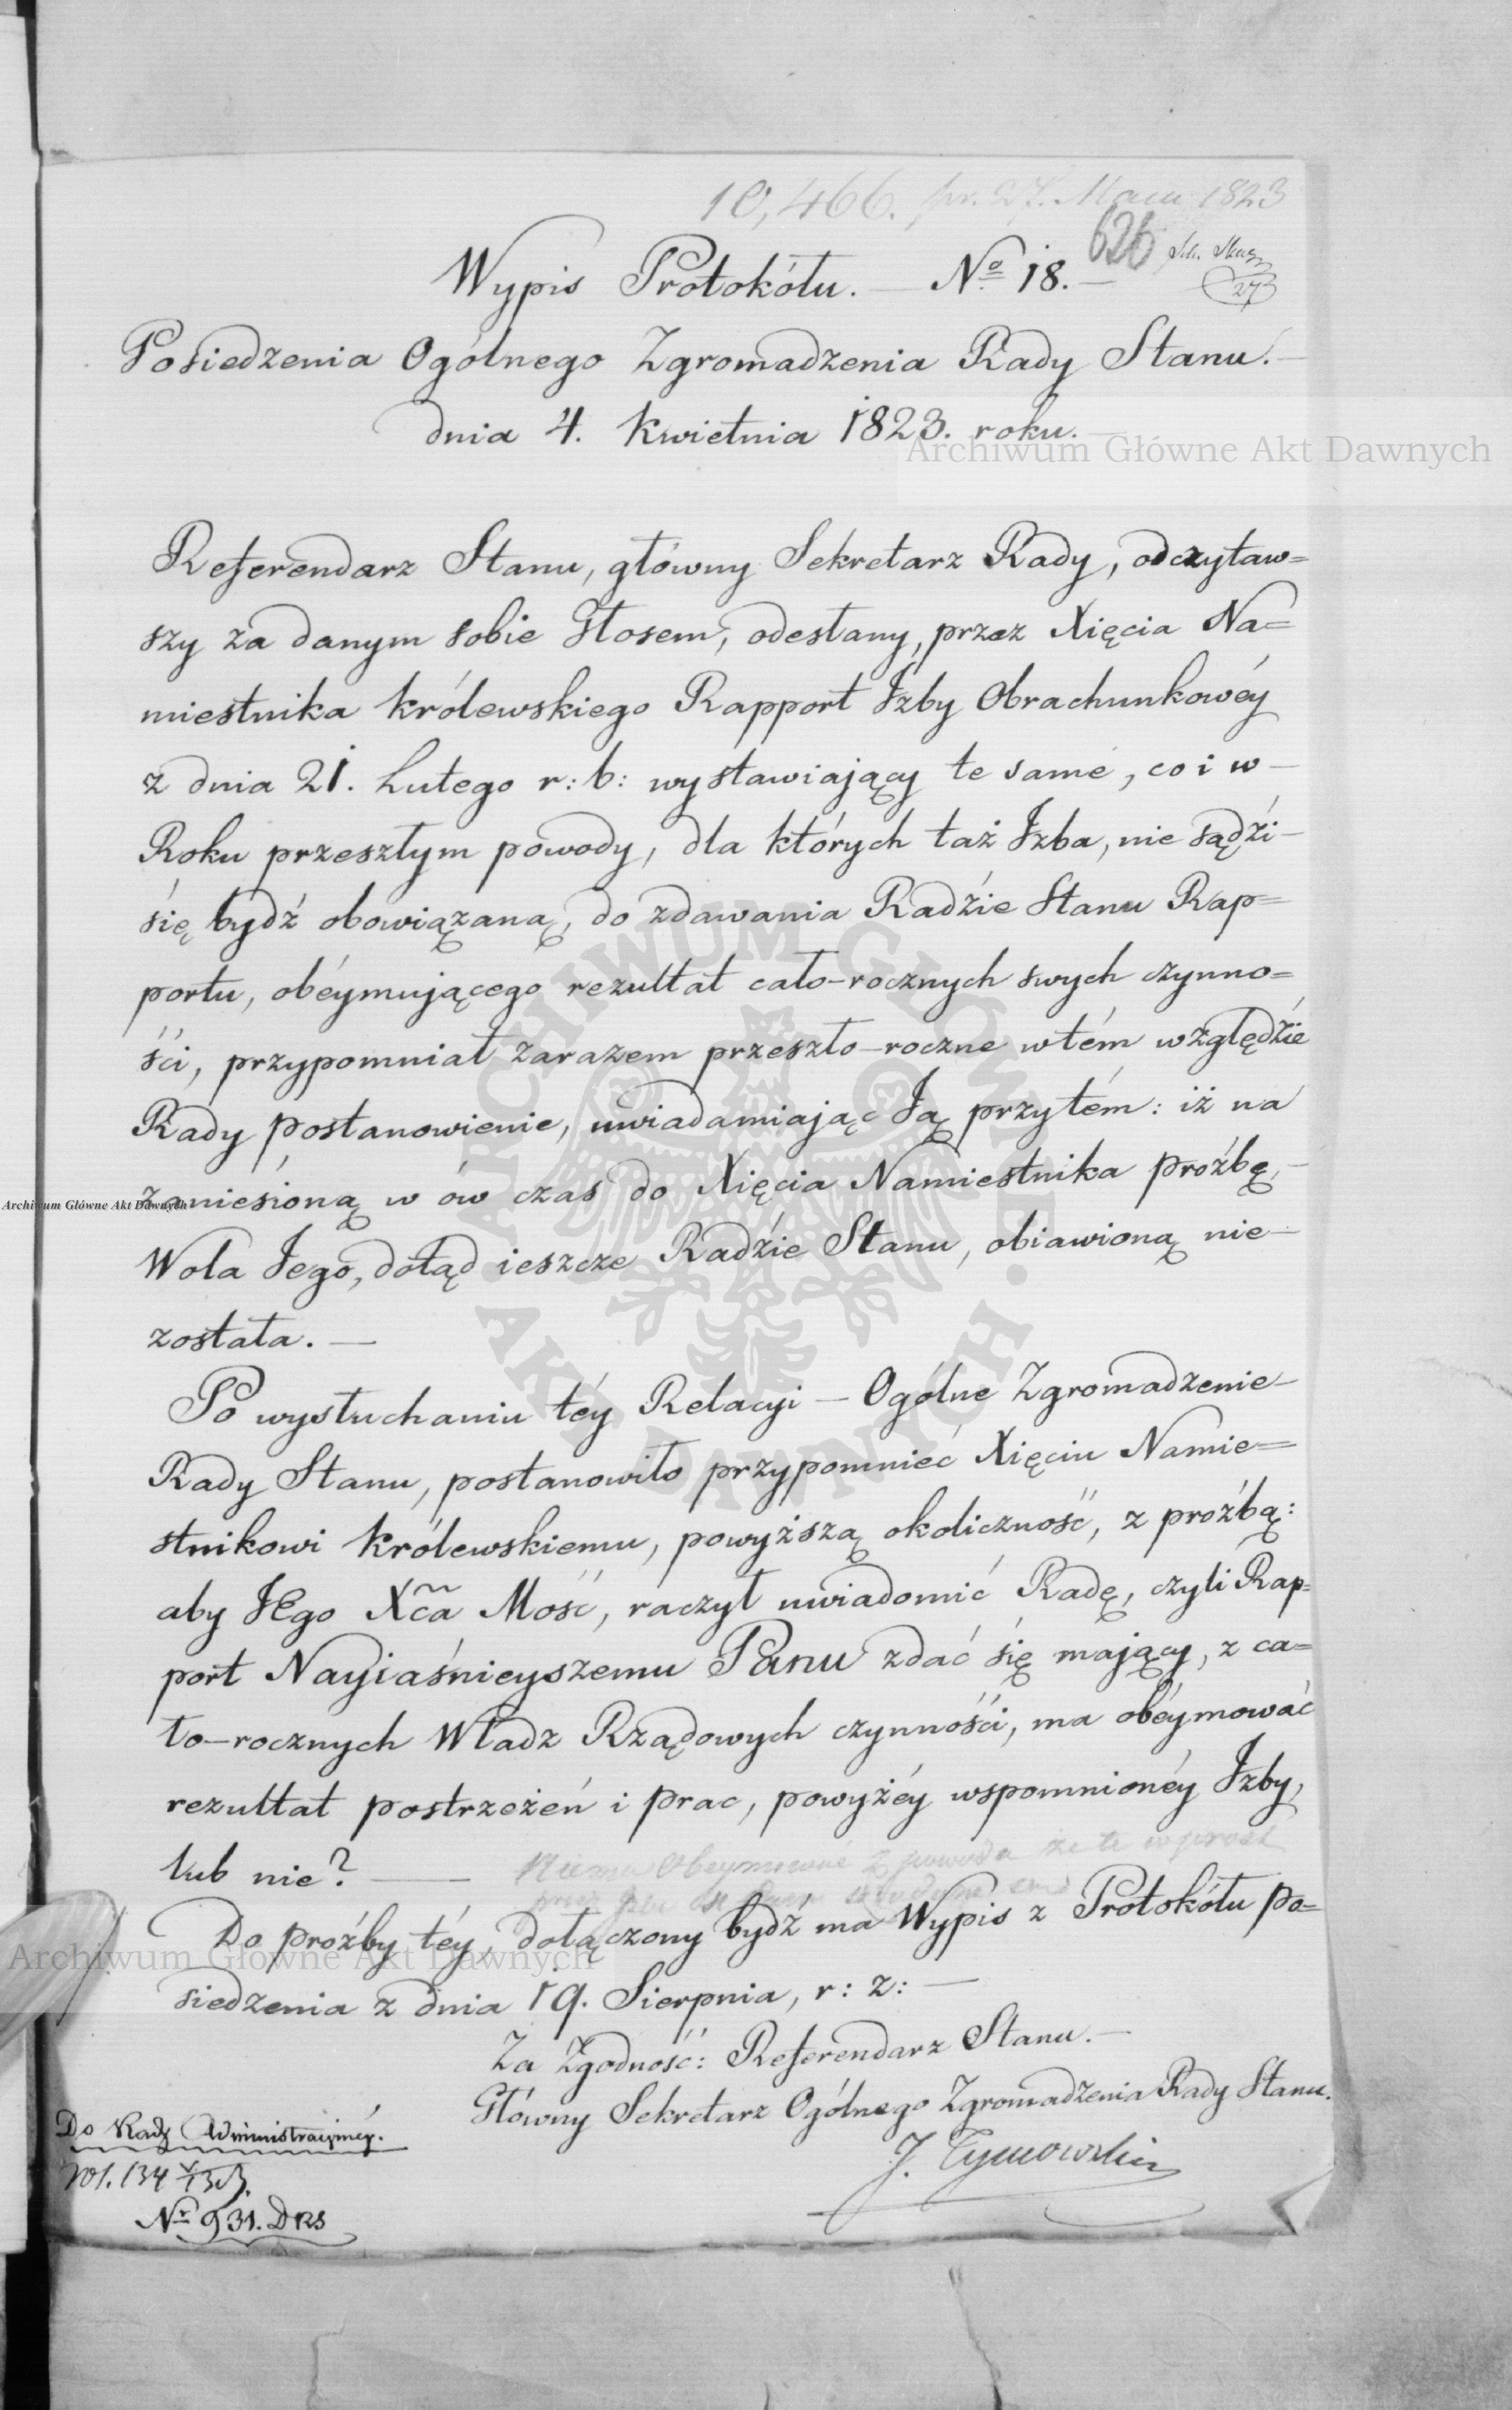 10,466. pr. 27. Maia 1823
626
Wypis Protokółu. — No 18. —
27
Posiedzenia Ogólnego Zgromadzenia Rady Stanu. —
dnia 4. Kwietnia 1823. roku. —
Archiwum Główne Akt Dawnych
Referendarz Stanu, główny Sekretarz Rady, odczytaw=
szy za danym sobie Głosem, odesłany, przez Xięcia Na=
miestnika Królewskiego Rapport Izby Obrachunkowéy
z dnia 21. Lutego r: b: wystawiaiący te same, co i w —
Roku przeszłym powody, dla których taż Izba, nie sądźi —
śię bydź obowiązaną, do zdawania Radźie Stanu Rap=
portu, obéymuiącego rezultat cało-rocznych swych czynno=
śći, przypomniał zarazem przeszło-roczne w tém względźie
Rady postanowienie, uwiadamiaiąc Ją przytém: iż na
zaniesioną w ów czas do Xięcia Namiestnika proźbę, —
Archiwum Główne Akt Dawnych
Wola Jego, dotąd ieszcze Radźie Stanu, obiawioną nie —
została. —
Po wysłuchaniu téy Relacyi — Ogólne Zgromadzenie —
Rady Stanu, postanowiło przypomnieć Xięciu Namie=
stnikowi Królewskiemu, powyższą okoliczność, z proźbą:
aby JEgo Xcia Mość, raczył uwiadomić Radę, czyli Rap=
port Nayiaśnieyszemu Panu zdać śię maiący, z ca=
ło-rocznych Władz Rządowych czynnośći, ma obéymować
rezultat postrzeżeń i prac, powyżéy wspomnionéy Izby,
lub nie? —
Niema Obeymować z powodu że te wprost
Do proźby téy, dołączony bydź ma Wypis z Protokółu po=
Archiwum Główne Akt Dawnych
siedzenia z dnia 19. Sierpnia, r: z: —
Za Zgodność: Referendarz Stanu. —
Główny Sekretarz Ogólnego Zgromadzenia Rady Stanu.
J. Tymowski
Do Rady Administracyinéy.
No 931. DRS
ARCHIWUM GŁÓWNE AKT DAWNYCH